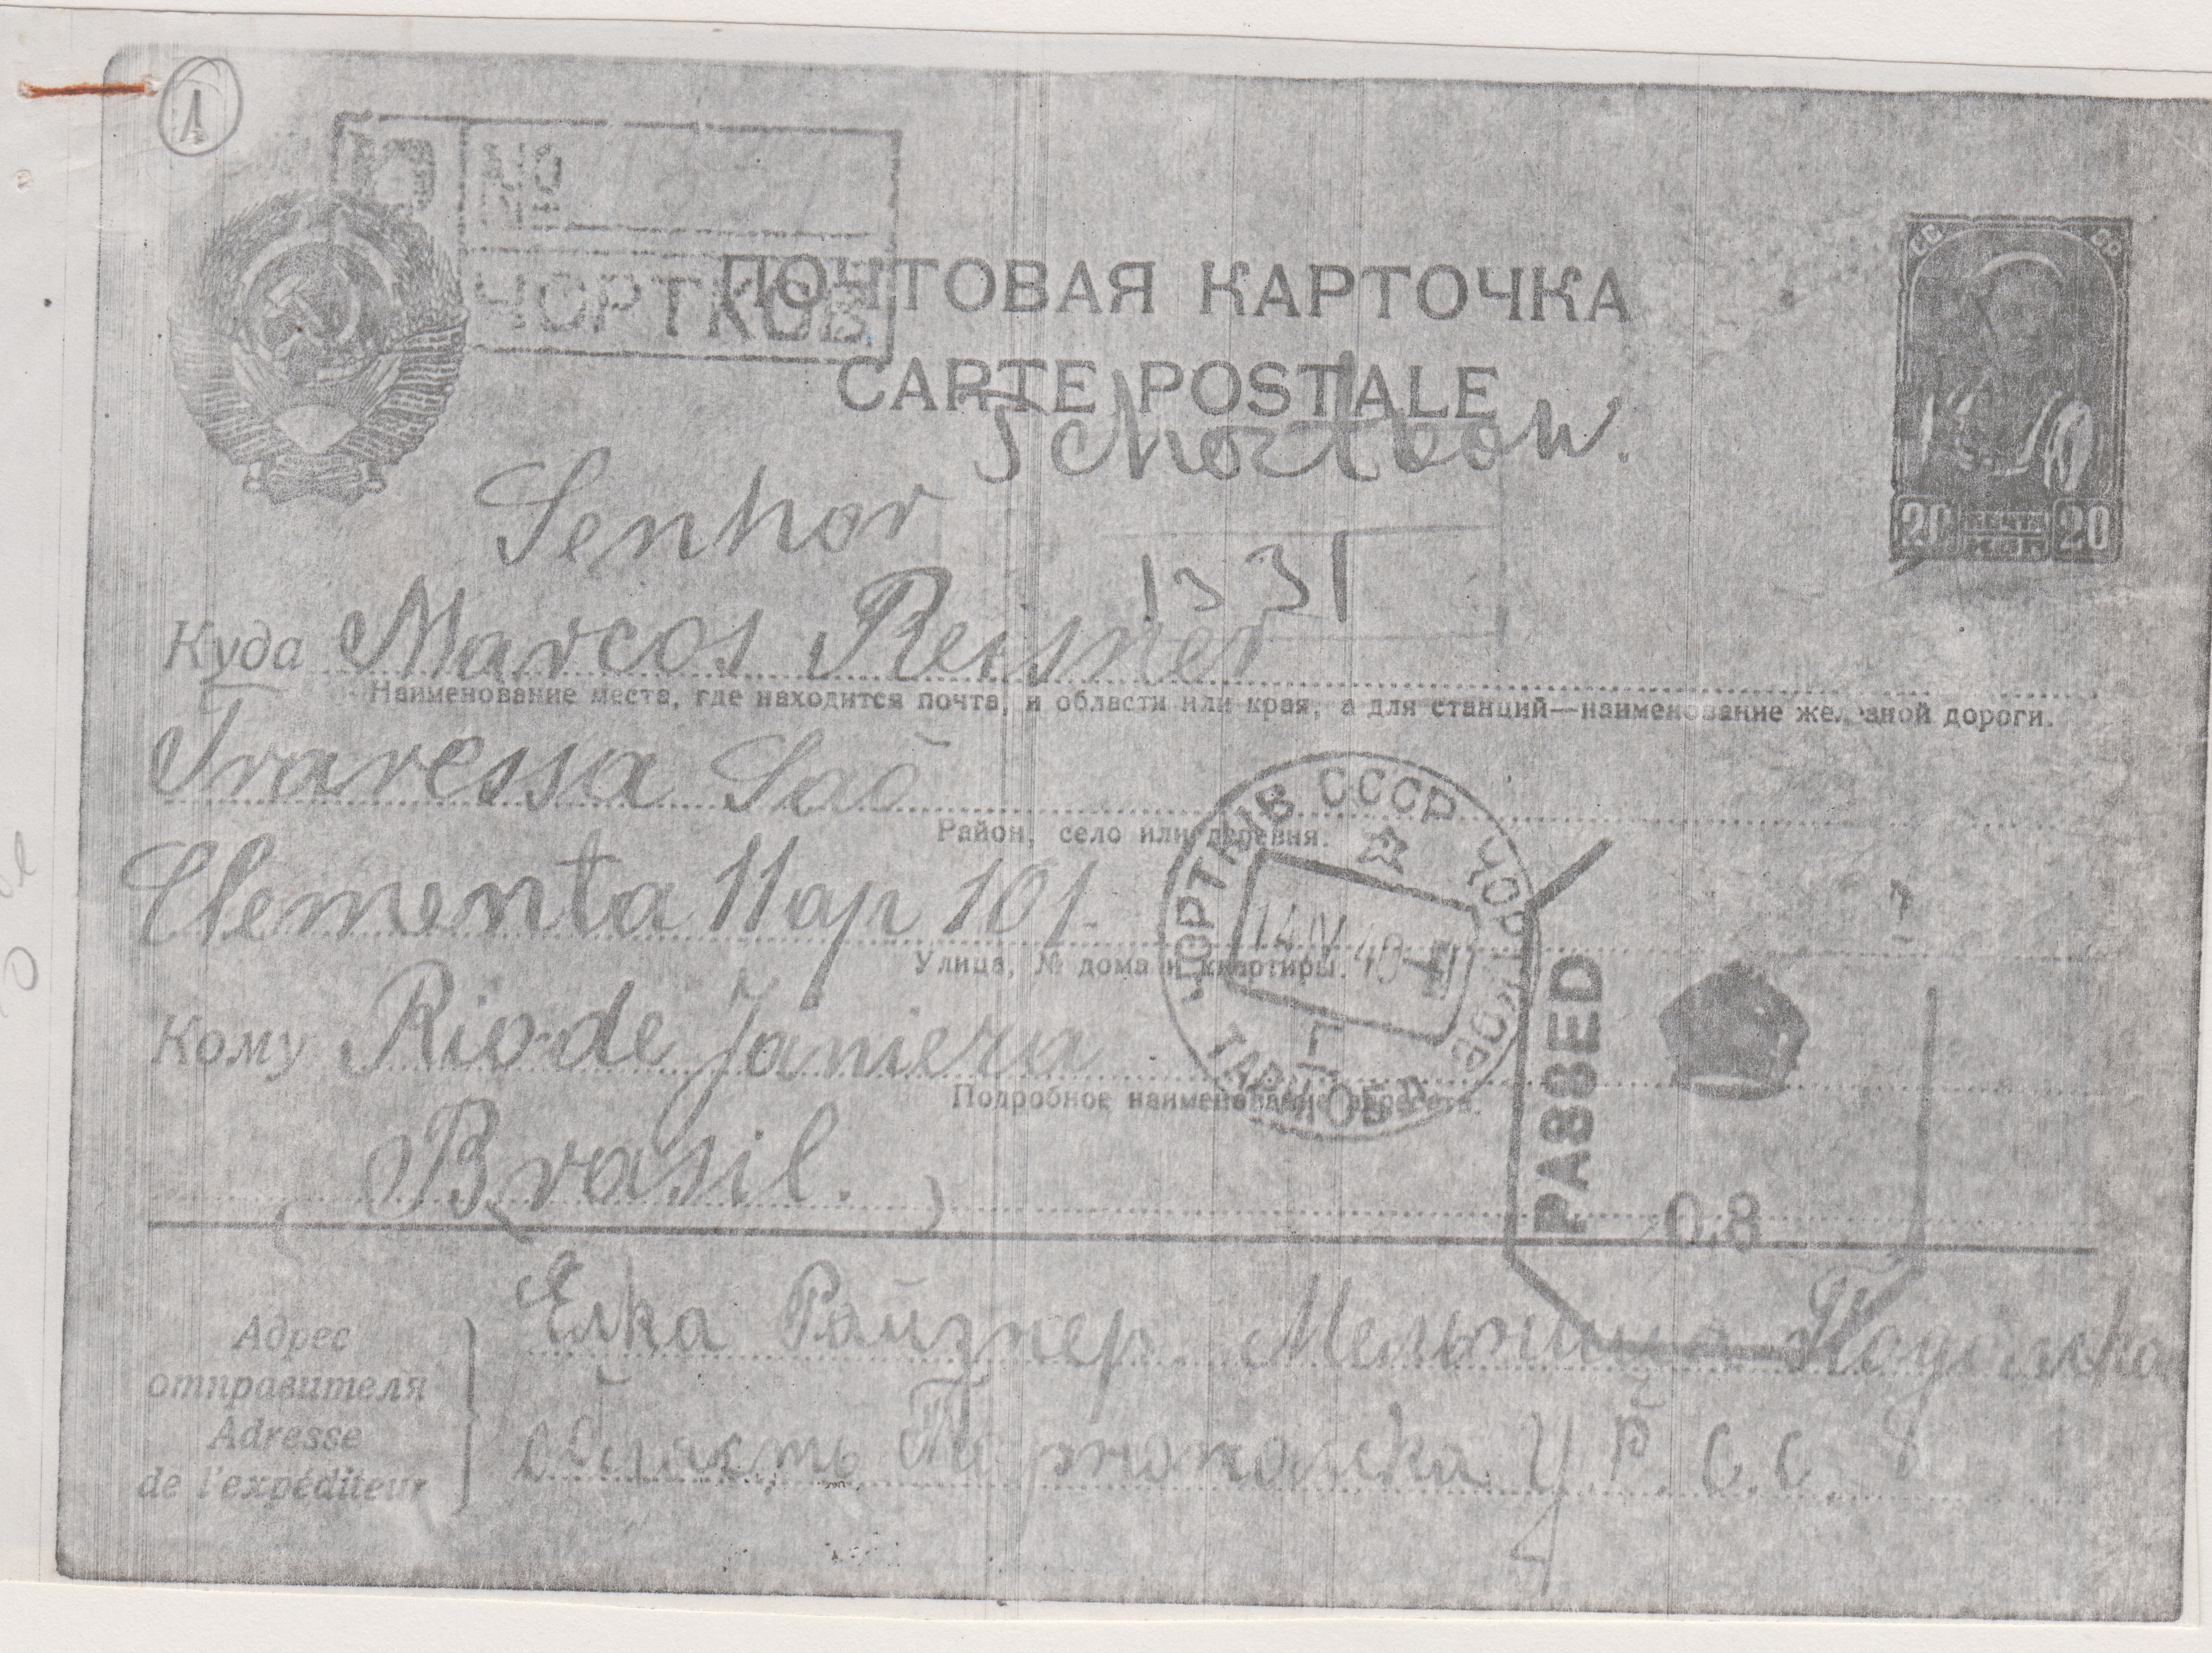 1
№
ЧОРТКОВ
ПОЧТОВАЯ КАРТОЧКА
CARTE POSTALE
Tschortkow.
СССР
20 ПОЧТА КОП. 20
Senhor
1331
Куда Marcos Reisner
Наименование места, где находится почта, и области или края, а для станций—наименование железной дороги.
Travessa Saõ
Район, село или деревня.
Clementa 11 ap 101.
Улица, № дома и квартиры.
Кому Rio-de Janiera
Подробное наименование адресата.
Brasil.
ЧОРТКІВ СССР ЧОРТКОВ
14 IV 40
ТАРНОПОЛ
PASSED
08
Адрес
отправителя
Adresse
de l'expéditeur
Елка Райзнер Мельница Подольска
область Тернопольска У.Р.С.С.